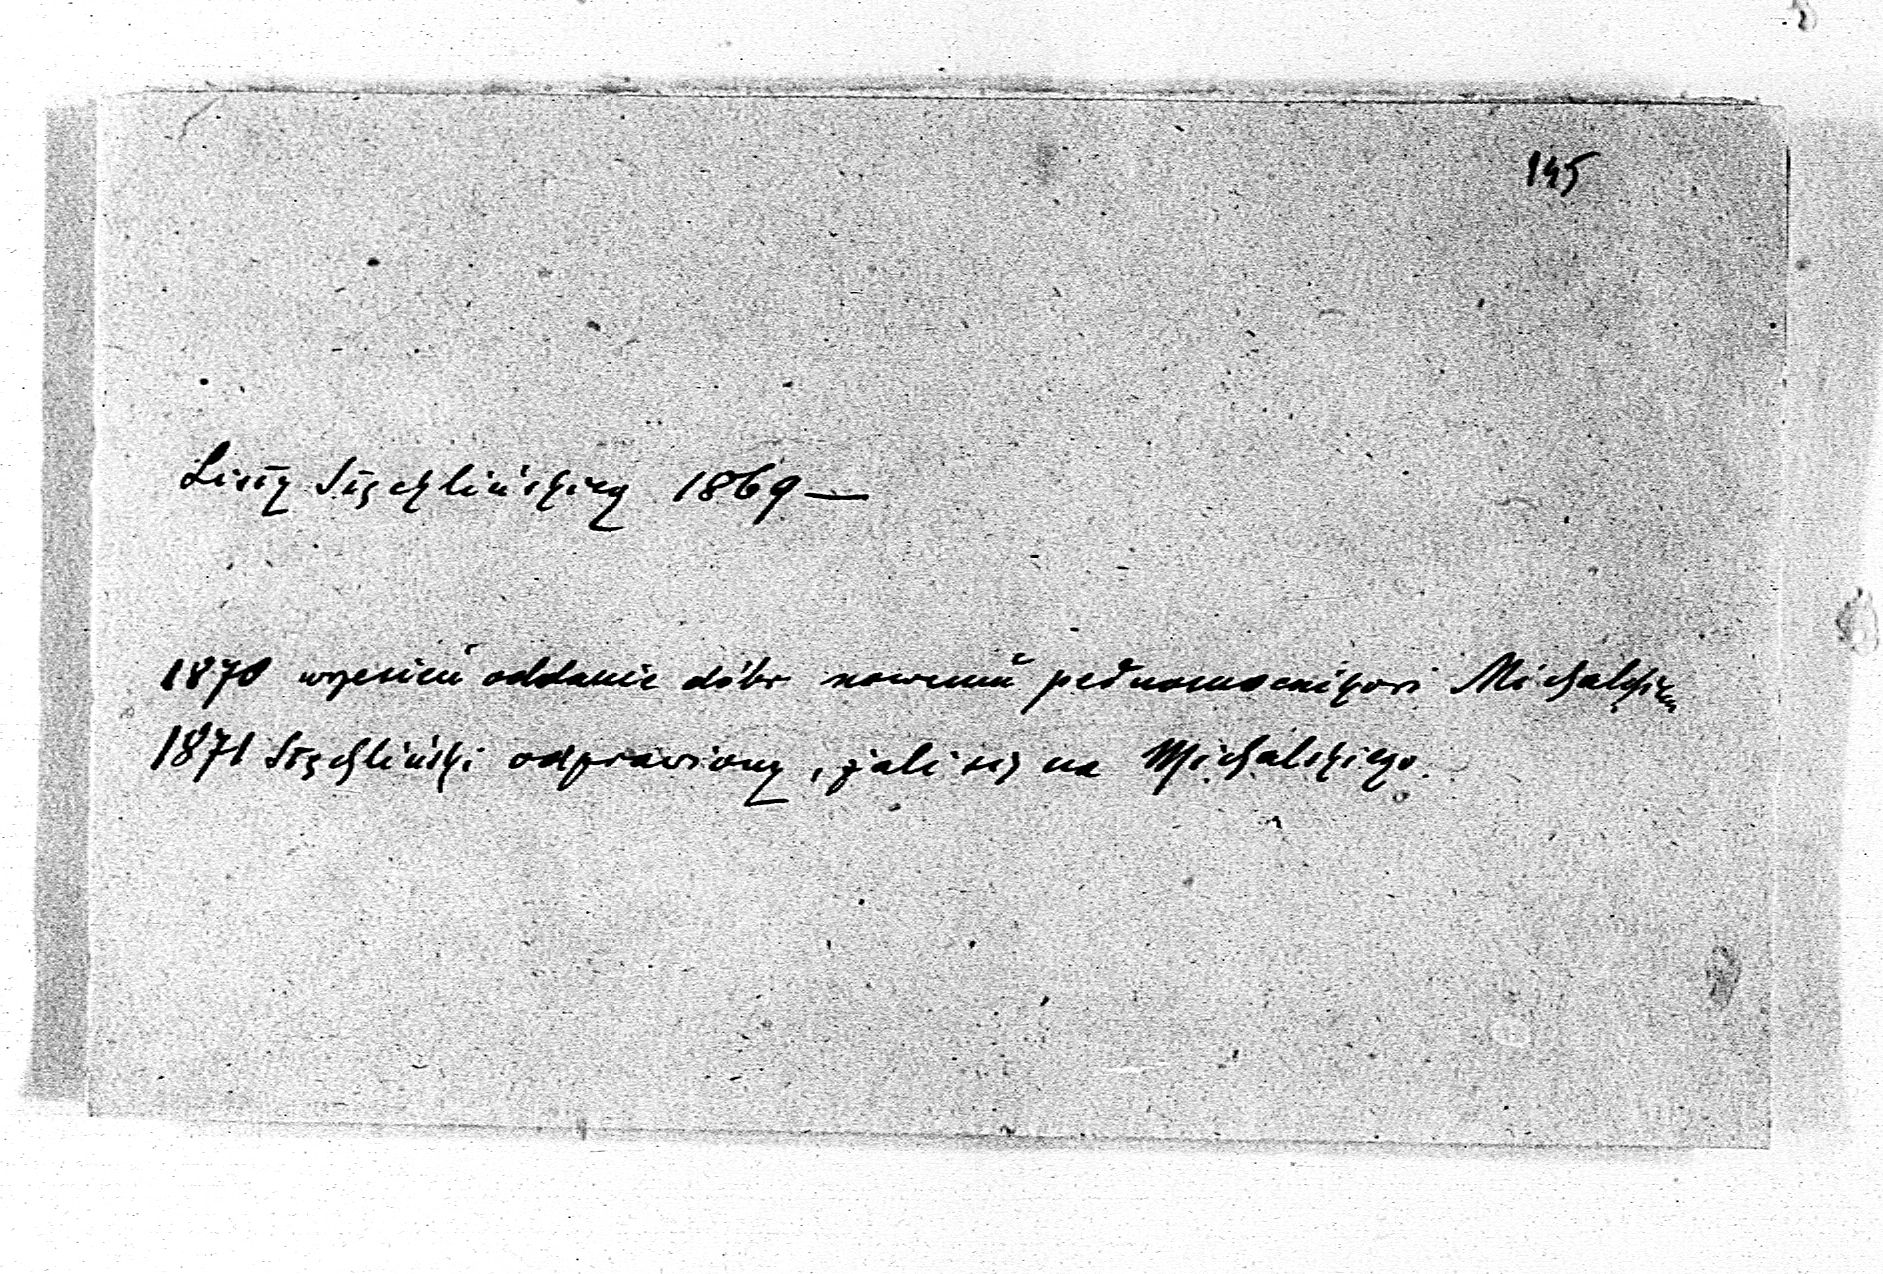 145
Listy Stechlińskiego 1869 —
1870 wrzesień oddanie dóbr nowemu pełnomocnikowi Michalskiemu
1871 Stechliński odprawiony, żali się na Michalskiego.